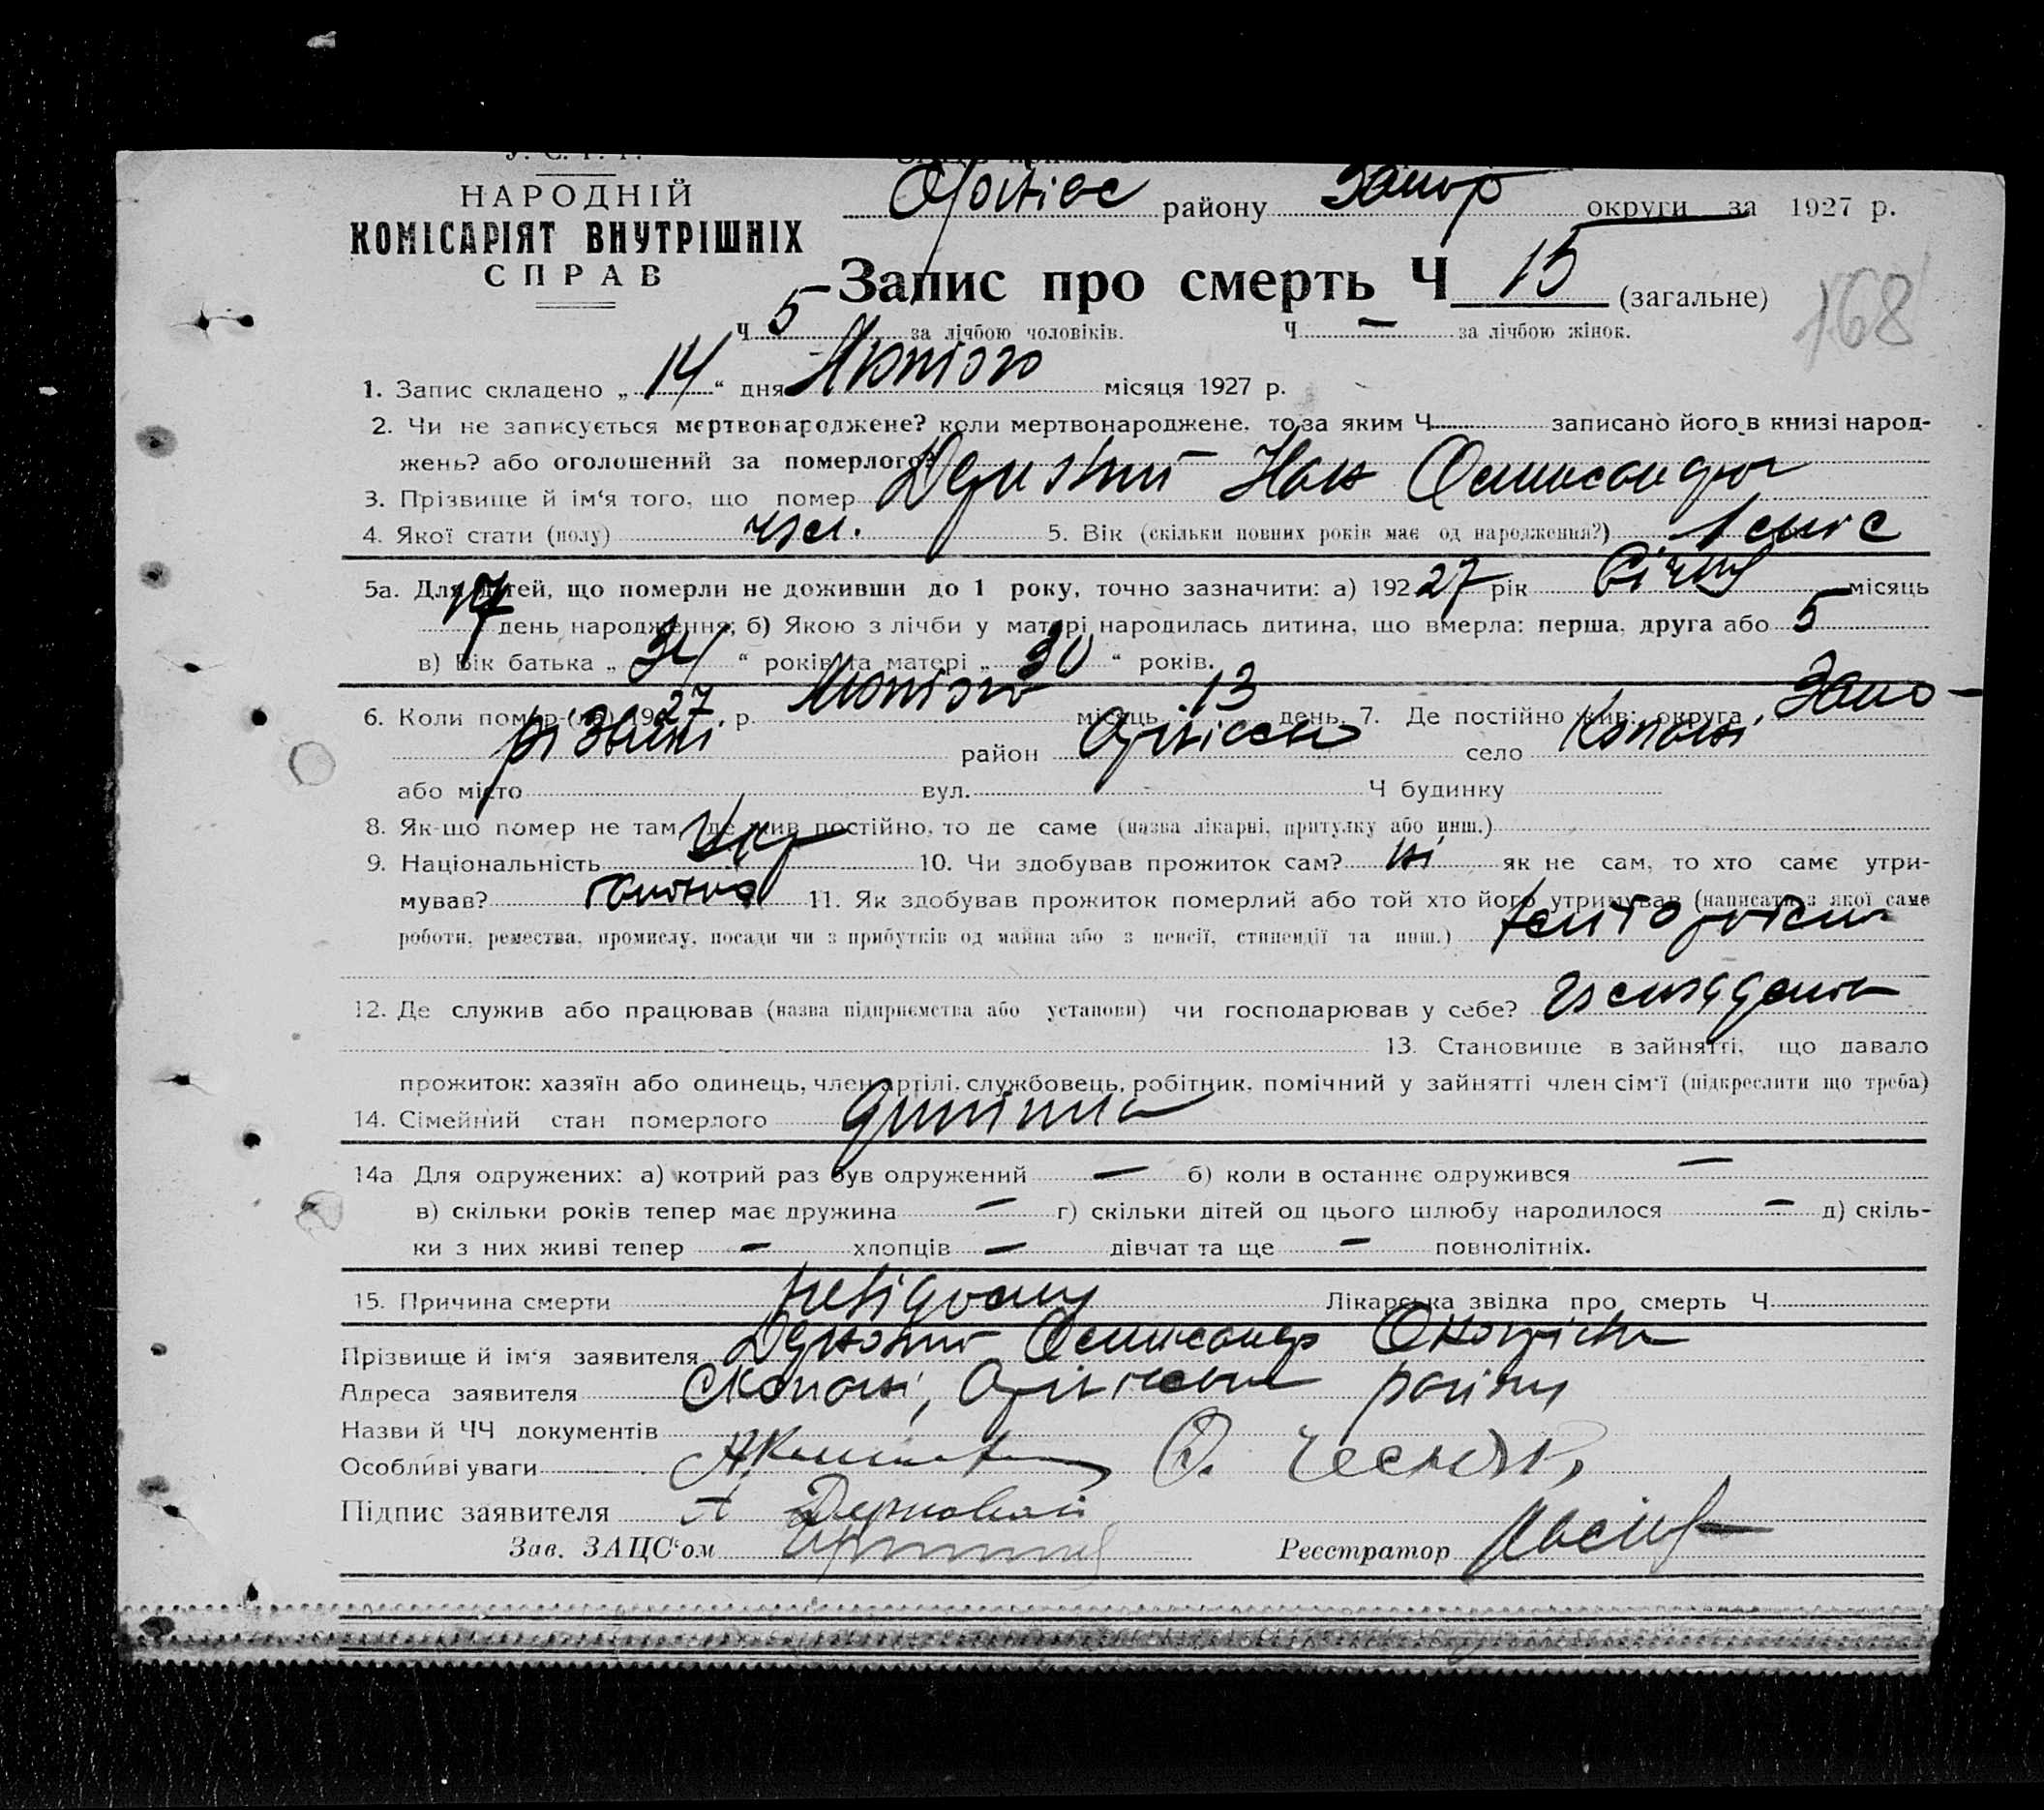 У. С. Р. Р.
НАРОДНІЙ
КОМІСАРІЯТ ВНУТРІШНІХ
СПРАВ
району Запор округи за 1927 р.
Запис про смерть Ч 15 (загальне)
168
Ч 5 за лічбою чоловіків. Ч — за лічбою жінок.
1. Запис складено „ 14 “ дня Лютого місяця 1927 р.
2. Чи не записується мертвонароджене? коли мертвонароджене, то за яким Ч записано його в книзі народ-
жень? або оголошений за померлого?
3. Прізвище й ім‘я того, що помер
4. Якої стати (полу) чол. 5. Вік (скільки повних років має од народження?) 1
5а. Для дітей, що померли не доживши до 1 року, точно зазначити: а) 192 27 рік Січня місяць
17 день народження; б) Якою з лічби у матері народилась дитина, що вмерла: перша, друга або 5
в) Вік батька „ “ років та матері „ 30 “ років.
6. Коли помер-(ла) 19 27 р. Лютого місяць 13 день. 7. Де постійно жив: округа Запо-
різький район село Канкані
або місто вул. Ч будинку
8. Як-що помер не там, де жив постійно, то де саме (назва лікарні, притулку або инш.)
9. Національність Укр 10. Чи здобував прожиток сам? ні як не сам, то хто саме утри-
мував? батько 11. Як здобував прожиток померлий або той хто його утримував (написати з якої саме
роботи, ремества, промислу, посади чи з прибутків од майна або з пенсії, стипендії та инш.) хліборобст
12. Де служив або працював (назва підприємства або установи) чи господарював у себе?
13. Становище в зайнятті, що давало
прожиток: хазяїн або одинець, член артілі, службовець, робітник, помічний у зайнятті член сім‘ї (підкреслити що треба)
14. Сімейний стан померлого дитина
14а Для одружених: а) котрий раз був одружений — б) коли в останнє одружився —
в) скільки років тепер має дружина — г) скільки дітей од цього шлюбу народилося — д) скіль-
ки з них живі тепер — хлопців — дівчат та ще — повнолітніх.
15. Причина смерти Лікарська звідка про смерть Ч
Прізвище й ім‘я заявителя Олександр
Адреса заявителя району
Назви й ЧЧ документів
Особливі уваги
Підпис заявителя А
Зав. ЗАЦС‘ом Реєстратор